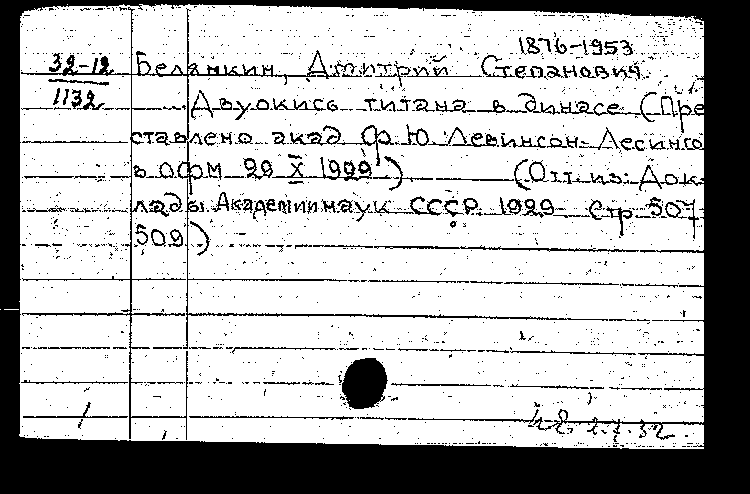 1876-1953
32-12 Белянкин, Дмитрий Степанович.
1132 ... Двуокись титана в динасе (Пре
ставлено акад Ф Ю Левинсон-Лесинго
в ОФМ 29 X 1929). (Отт. из: Док-
лады Академии наук СССР. 1929 Стр 507-
509)